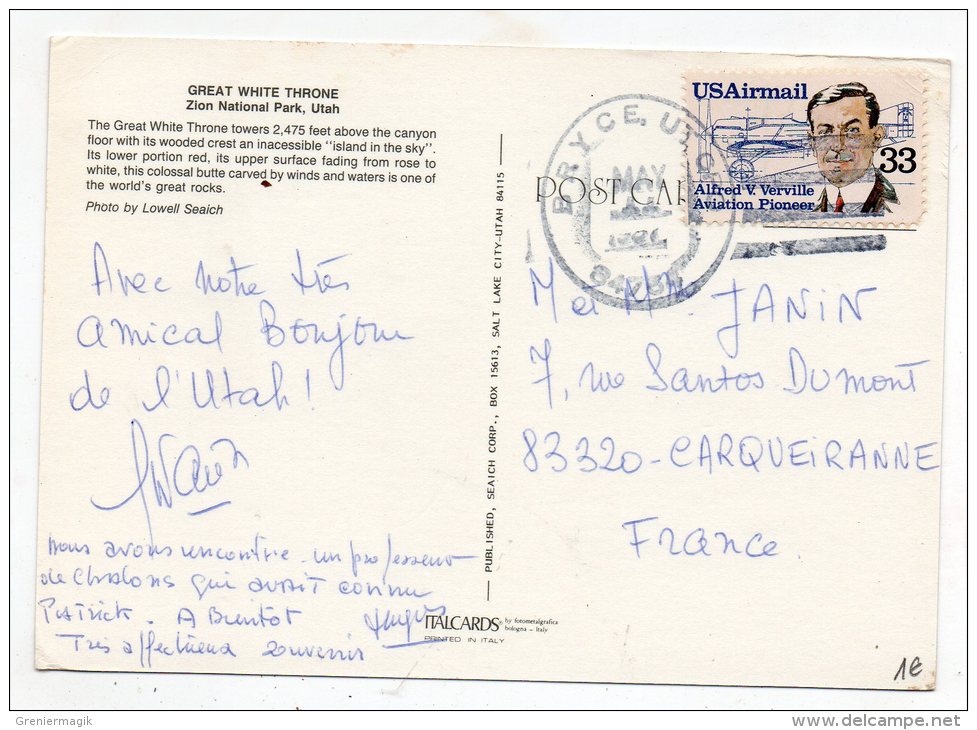 GREAT WHITE THRONE
Zion National Park, Utah
The Great White Throne towers 2,475 feet above the canyon
floor with its wooded crest an inacessible "island in the sky".
Its lower portion red, its upper surface fading from rose to
white, this colossal butte carved by winds and waters is one of
the world's great rocks.
Photo by Lowell Seaich
Avec notre très
amical Bonjour
de l'Utah!
nous avons rencontre un professeur
de Chalons qui avait connu
Patrick. A Bientot
Très affectueux souvenir
PUBLISHED, SEAICH CORP., BOX 15613, SALT LAKE CITY-UTAH 84115
ITALCARDS® by fotometalgrafica
bologna - italy
PRINTED IN ITALY
POST CAR
BRYCE, UT
MAY
84764
USAirmail
33
Alfred V. Verville
Aviation Pioneer
M et Mme JANIN
7, rue Santos Dumont
83320-CARQUEIRANNE
France
1€
Greniermagik
www.delcampe.net